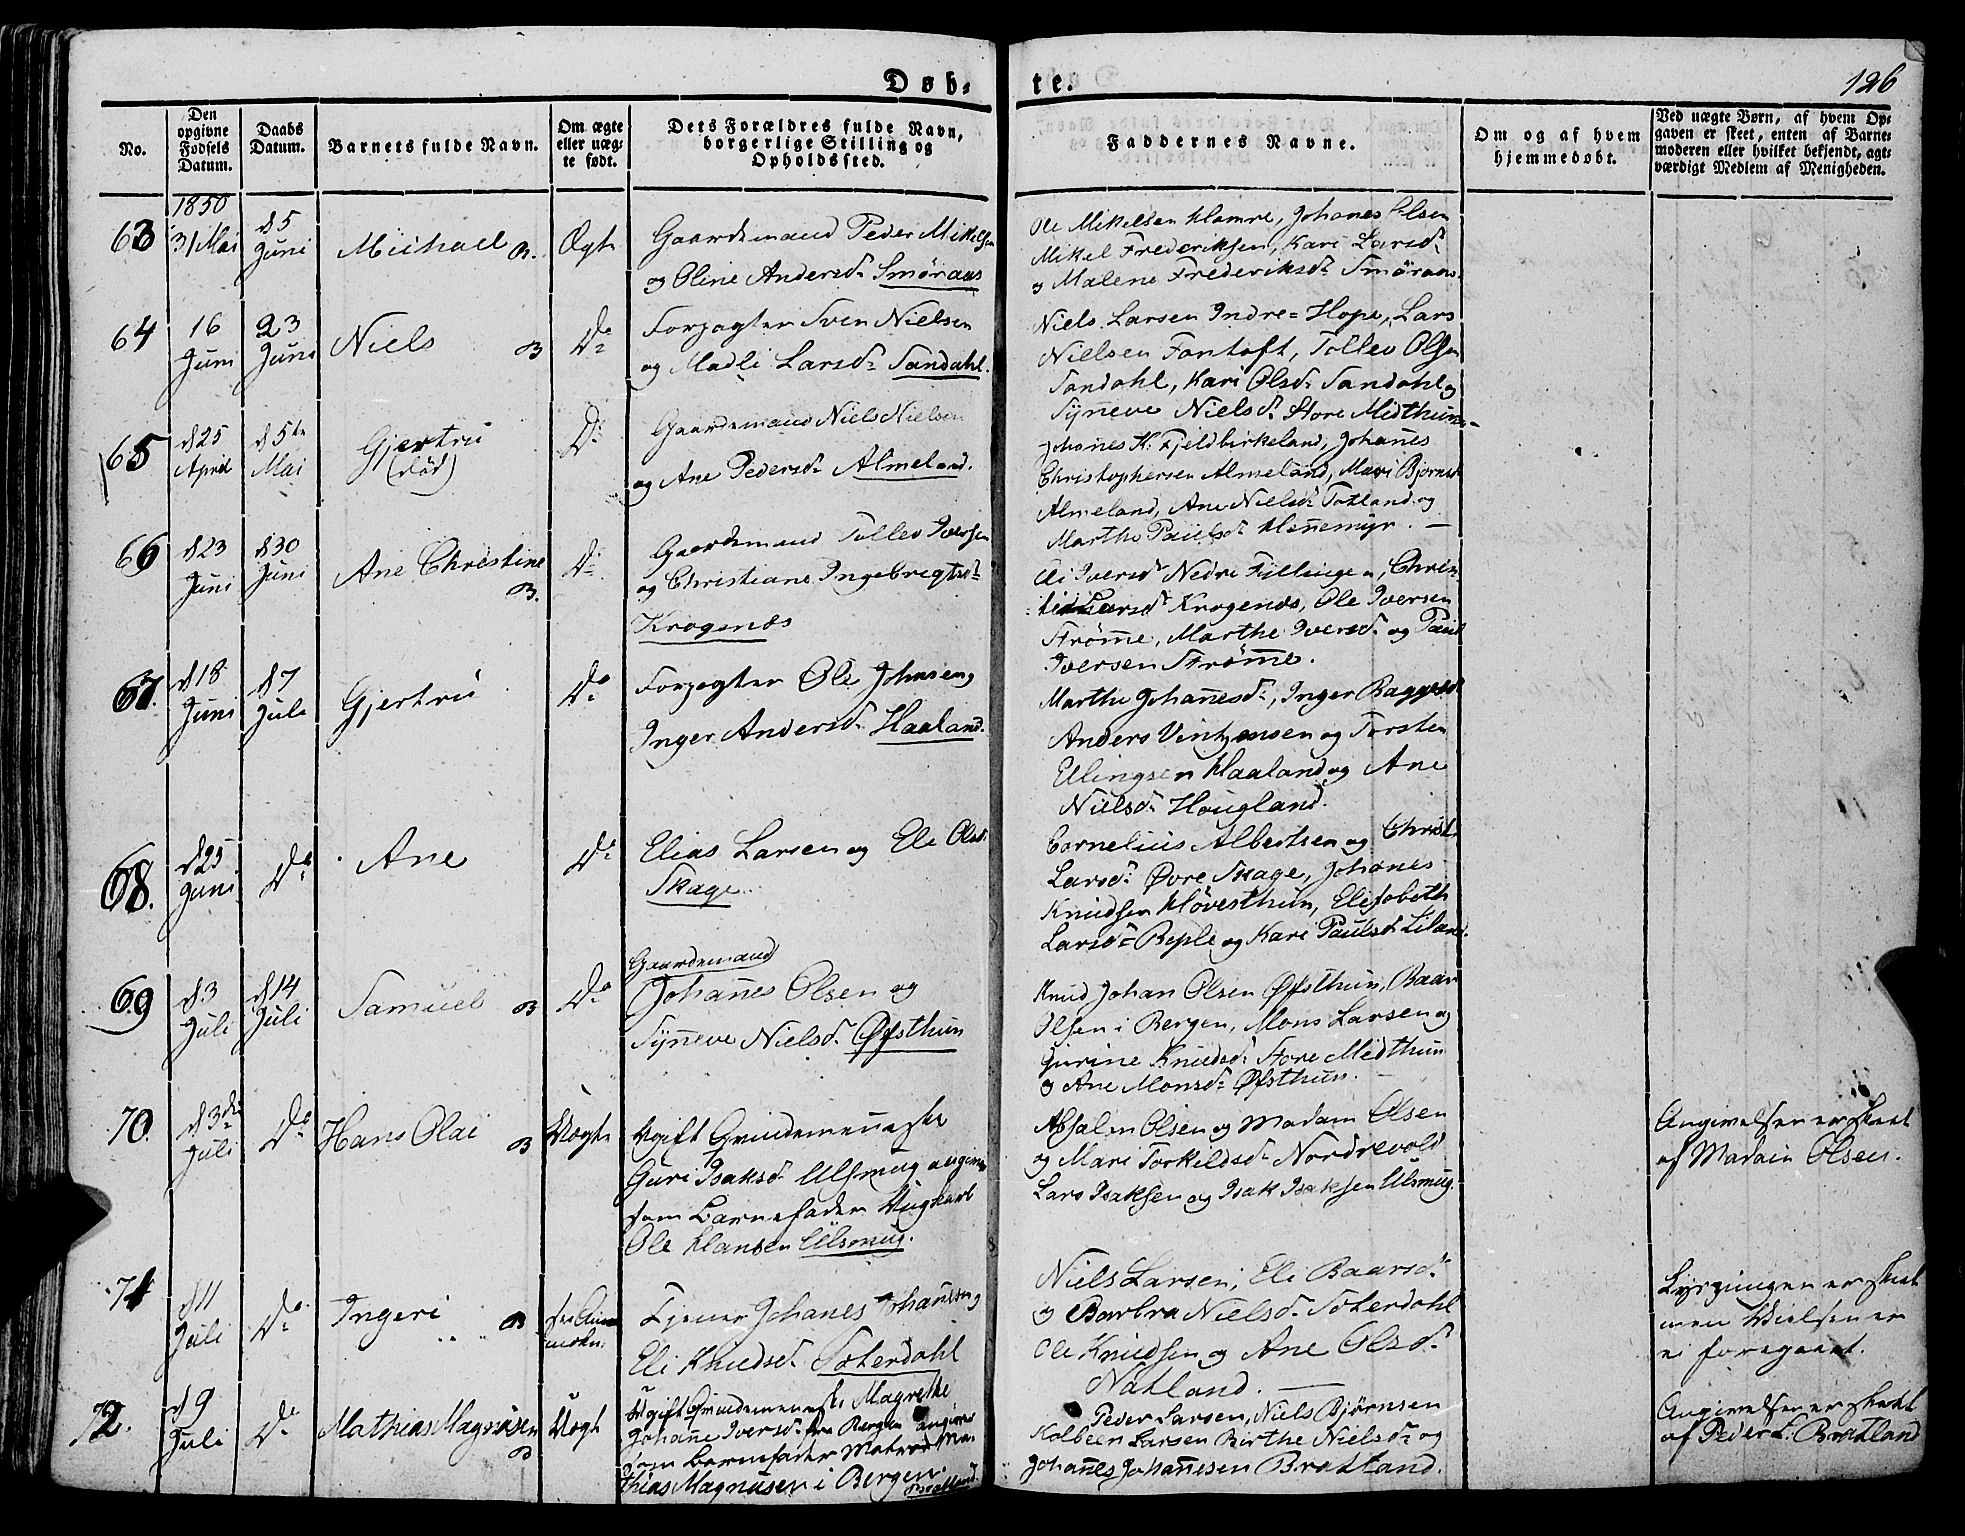 Døb-
te.
126
No.
Den opgivne Fødsels Datum.
Daabs Datum.
Barnets fulde Navn.
Om ægte eller uægte født.
Dets Forældres fulde Navn, borgerlige Stilling og Opholdssted.
Faddernes Navne.
Om og af hvem hjemmedøbt.
Ved uægte Børn, af hvem Opgaven er skeet, enten af Barnemoderen eller hvilket bekjendt, agtværdigt Medlem af Menigheden.
1850
63
31 Mai
d 5 Juni
Michael B.
Ægte
Gaardemand Peder Mikelsen
og Oline Andersd. Smøraas
Ole Mikelsen Hamre, Johanes Olsen
Mikel Frederiksen, Kari Larsd.
og Malene Frederiksd. Smøraas.
64
16 Juni
23 Juni
Niels B
Do
Forpagter Sven Nielsen
og Madli Larsd. Sandahl.
Niels Larsen Indre=Hope, Lars
Nielsen Fantoft, Tollev Olsen
Sandahl, Kari Olsd. Sandahl og
Synneve Nielsd. Store Midthun
65
d 25 April
d 5te Mai
Gjertru
(død)
Do
Gaardemand Niels Nielsen
og Ane Pedersd. Almeland.
Johanes K. Fjeldbirkeland, Johanes
Christophersen Almeland, Mari Bjørnsd.
Almeland, Ane Nielsd. Totland og
Marthe Paulsd. Hennemyr. —
66
d 23 Juni
d 30 Juni
Ane Christine
B.
Do
Gaardemand Tollev Iversen
og Christiane Ingebrigtsd.
Krogenæs
Iversd. Nedre Fyllingen, Chris-
Larsd. Krogenæs, Ole Iversen
Strømme, Marthe Iversd. og Paul
Iversen Strømme.
67.
d 18 Juni
d 7 Juli
Gjertru
Do
Forpagter Ole Johnsen og
Inger Andersd. Haaland.
Marthe Johanesd., Inger Baggesd.
Anders Vintzensen og Torsten
Ellingsen Haaland og Ane
Nielsd. Hougland.
68.
d 25 Juni
Do
Ane
Do
Elias Larsen og Eli Olsd.
Skage.
Cornelius Albertsen og Christ.
Larsd. Øvre Skage, Johanes
Knudsen Høvesthun, Elisabeth
Larsd. Riple og Kari Paulsd. Liland.
69
d 3 Juli
d 14 Juli
Samuel B
Do
Gaardemand
Johanes Olsen og
Synneve Nielsd. Øfsthun
Knud Johan Olsen Øfsthun, Baar
Olsen i Bergen, Mons Larsen og
Gurine Knudsd. Store Midthun
og Ane Monsd. Øfsthun. —
70.
d 3die Juli
Do
Hans Olai B
Uægte
Ugift Qvindemenneske
Guri Isaksd. Ulsmug angiver
som Barnefader Ungkarl
Ole Hansen Ulsmug.
Absalon Olsen og Madam Olsen
og Mari Torkildsd. Nordrevold
Lars Isaksen og Isak Isaksen Ulsmug.
Angivelsen er skeet
af Madam Olsen.
71
d 11 Juli
Do
Ingeri B
Tjener Johanes Johansen og
Eli Knudsd. Søterdahl
Niels Larsen, Eli Baarsd.
og Barbra Nielsd. Søterdahl
Ole Knudsen og Ane Olsd.
Natland. —
Lysningen er skeet
men Vielsen er
ei foregaaet.
72.
d 9 Juli
Do
Mathias Magnusen
B
Uægte
Ugift Qvindemenneske Magrethe
Johanne Iversd. fra Bergen angiver
som Barnefader Matros Ma-
thias Magnusen i Bergen.
Bratland.
Peder Larsen, Niels Bjørnsen
Kolbeen Larsen Birthe Nielsd. og
Johannes Johannesen Bratland.
Angivelsen er skeet
af Peder L. Bratland